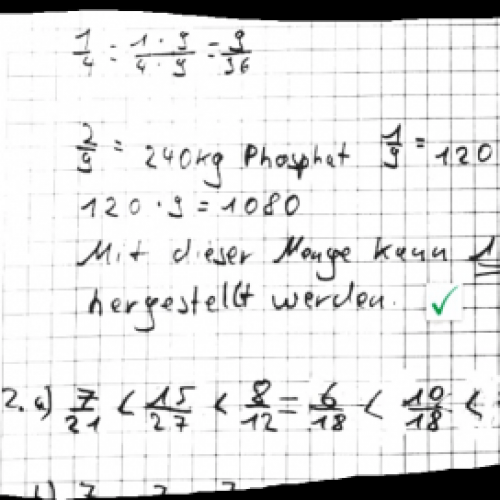 1/4 = 1·9/4·9 = 9/36
2/9 = 240kg Phosphat 1/9 = 120
120·9 = 1080
Mit dieser Menge kann 1
hergestellt werden. ✓
2. a) 7/21 < 15/27 < 8/12 = 6/18 < 10/18 <